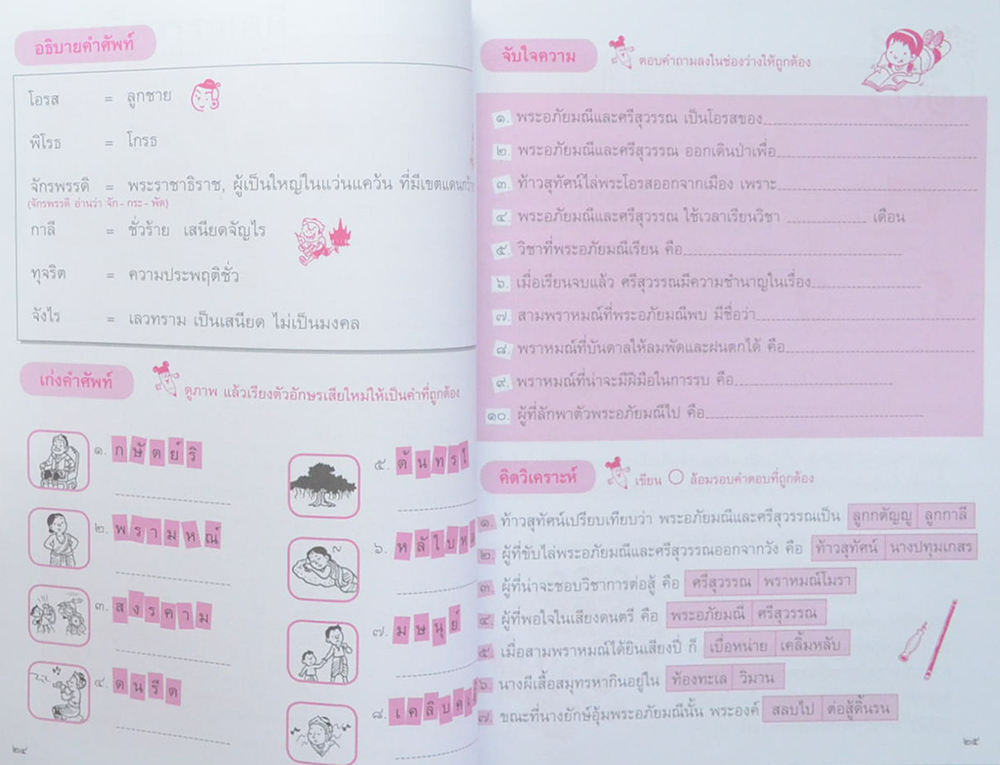 อธิบายคำศัพท์
โอรส = ลูกชาย
พิโรธ = โกรธ
จักรพรรดิ = พระราชาธิราช, ผู้เป็นใหญ่ในแว่นแคว้น ที่มีเขตแดนกว้าง
(จักรพรรดิ อ่านว่า จัก - กระ - พัด)
กาลี = ชั่วร้าย เสนียดจัญไร
ทุจริต = ความประพฤติชั่ว
จังไร = เลวทราม เป็นเสนียด ไม่เป็นมงคล
เก่งคำศัพท์
ดูภาพ แล้วเรียงตัวอักษรเสียใหม่ให้เป็นคำที่ถูกต้อง
๑. ก ษั ต ย์ ริ
๒. พ ร า ม ห ณ์
๓. ส ง ร ค า ม
๔. ด น รี ต
๕. ต้ น ท ร
๖. ห ลั ใ บ
๗. ม ษ นุ ย์
๘. เ ค ลิ บ
๒๔
จับใจความ
ตอบคำถามลงในช่องว่างให้ถูกต้อง
๑. พระอภัยมณีและศรีสุวรรณ เป็นโอรสของ
๒. พระอภัยมณีและศรีสุวรรณ ออกเดินป่าเพื่อ
๓. ท้าวสุทัศน์ไล่พระโอรสออกจากเมือง เพราะ
๔. พระอภัยมณีและศรีสุวรรณ ใช้เวลาเรียนวิชา เดือน
๕. วิชาที่พระอภัยมณีเรียน คือ
๖. เมื่อเรียนจบแล้ว ศรีสุวรรณมีความชำนาญในเรื่อง
๗. สามพราหมณ์ที่พระอภัยมณีพบ มีชื่อว่า
๘. พราหมณ์ที่บันดาลให้ลมพัดและฝนตกได้ คือ
๙. พราหมณ์ที่น่าจะมีฝีมือในการรบ คือ
๑๐. ผู้ที่ลักพาตัวพระอภัยมณีไป คือ
คิดวิเคราะห์
เขียน ล้อมรอบคำตอบที่ถูกต้อง
๑. ท้าวสุทัศน์เปรียบเทียบว่า พระอภัยมณีและศรีสุวรรณเป็น ลูกกตัญญู ลูกกาลี
๒. ผู้ที่ขับไล่พระอภัยมณีและศรีสุวรรณออกจากวัง คือ ท้าวสุทัศน์ นางปทุมเกสร
๓. ผู้ที่น่าจะชอบวิชาการต่อสู้ คือ ศรีสุวรรณ พราหมณ์โมรา
๔. ผู้ที่พอใจในเสียงดนตรี คือ พระอภัยมณี ศรีสุวรรณ
๕. เมื่อสามพราหมณ์ได้ยินเสียงปี่ ก็ เบื่อหน่าย เคลิ้มหลับ
๖. นางผีเสื้อสมุทรหากินอยู่ใน ท้องทะเล วิมาน
๗. ขณะที่นางยักษ์อุ้มพระอภัยมณีนั้น พระองค์ สลบไป ต่อสู้ดิ้นรน
๒๕